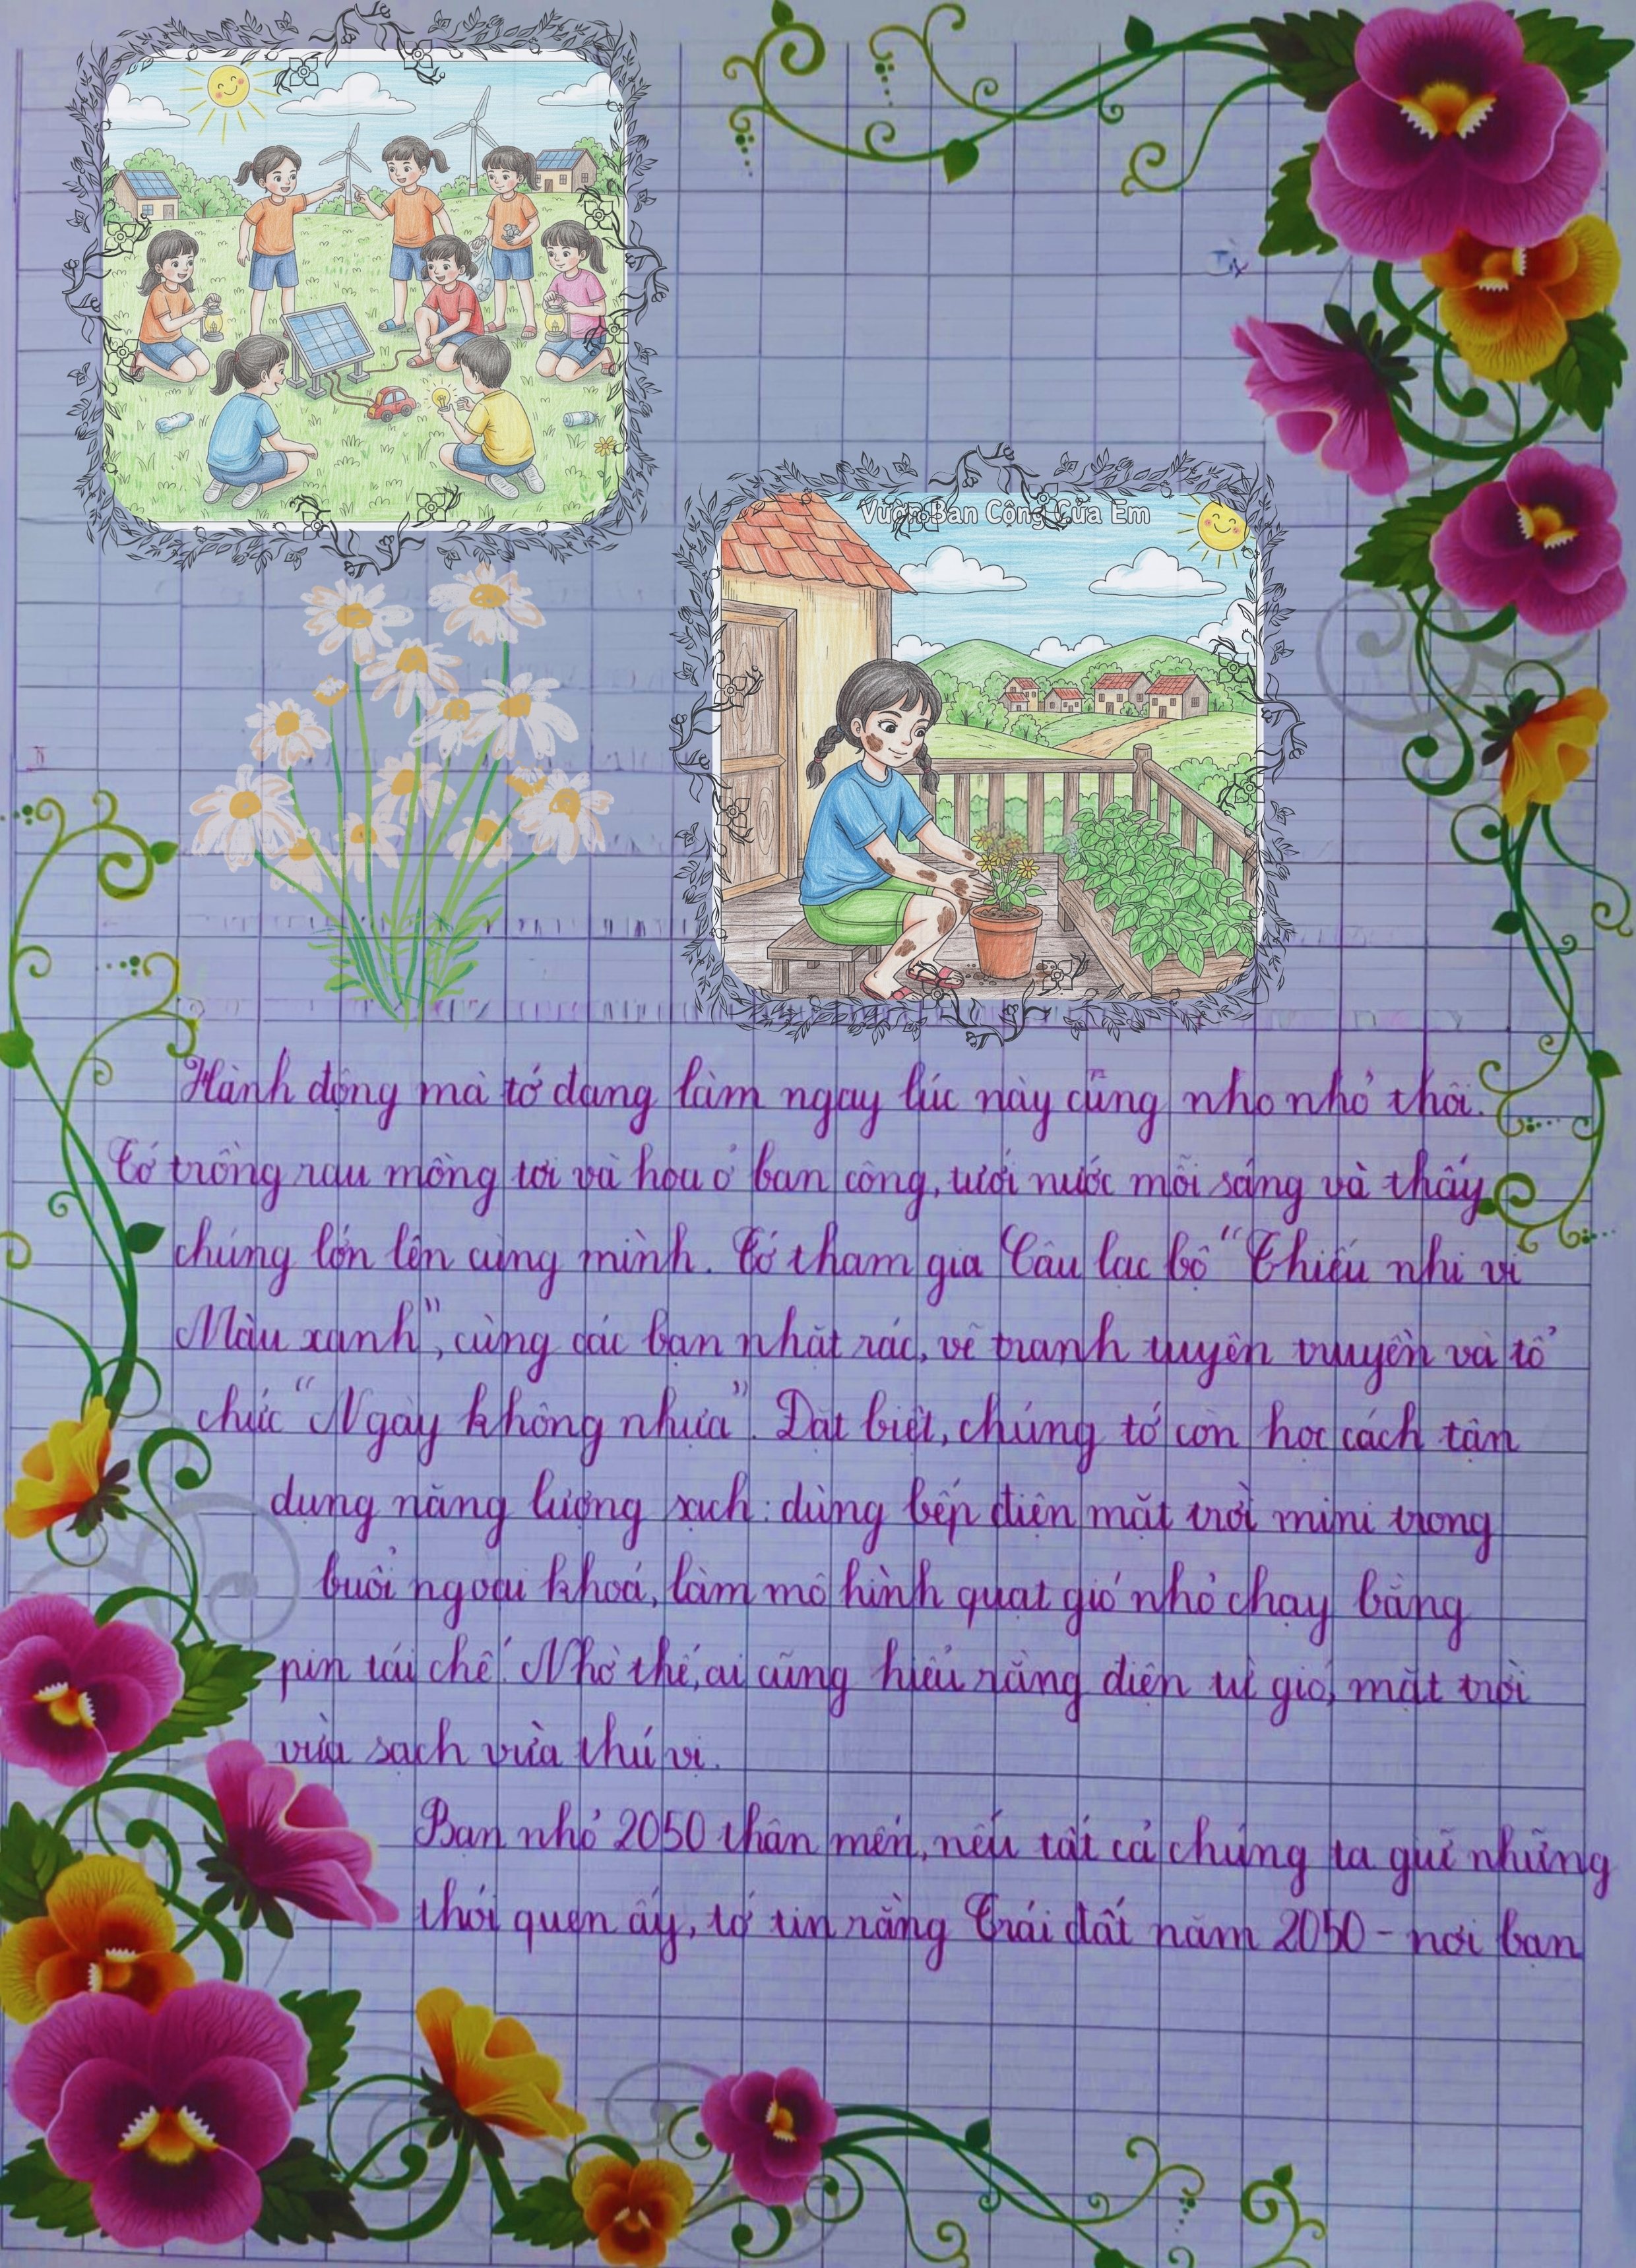 Vườn Ban Công Của Em
Hành động mà tớ đang làm ngay lúc này cũng nho nhỏ thôi.
Tớ trồng rau mồng tơi và hoa ở ban công, tưới nước mỗi sáng và thấy
chúng lớn lên cùng mình. Tớ tham gia Câu lạc bộ “Thiếu nhi vì
Màu xanh”, cùng các bạn nhặt rác, vẽ tranh tuyên truyền và tổ
chức “Ngày không nhựa”. Đặt biệt, chúng tớ còn học cách tận
dụng năng lượng sạch: dùng bếp điện mặt trời mini trong
buổi ngoại khoá, làm mô hình quạt gió nhỏ chạy bằng
pin tái chế. Nhờ thế, ai cũng hiểu rằng điện từ gió, mặt trời
vừa sạch vừa thú vị.
Bạn nhỏ 2050 thân mến, nếu tất cả chúng ta giữ những
thói quen ấy, tớ tin rằng Trái đất năm 2050 - nơi bạn